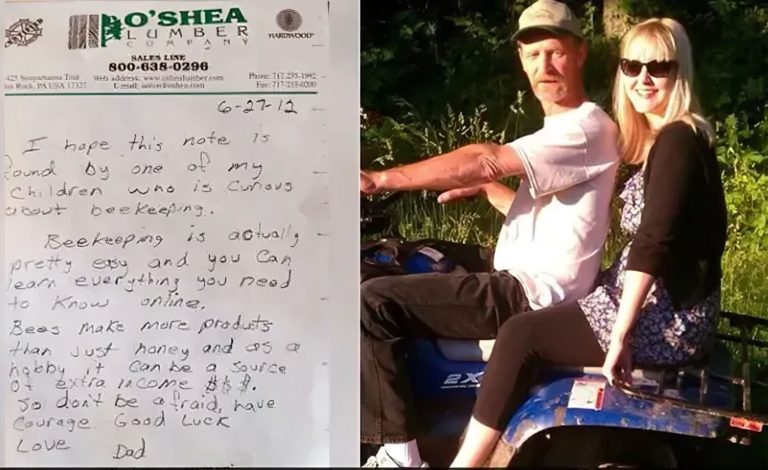 O'SHEA
LUMBER
COMPANY
WARDWOOD
SALES LINE
800-638-0296
425 Susquehanna Trail Web address: www.oshealumber.com Phone: 717-235-1992
Rock, PA USA 17327 E-mail: Fax: 717-235-0200
6-27-12
I hope this note is
found by one of my
children who is curious
about beekeeping.
Beekeeping is actually
pretty easy and you can
learn everything you need
to know online.
Bees make more products
than just honey and as a
hobby it can be a source
of extra income $$$.
So don't be afraid, have
courage. Good Luck
Love Dad
2X